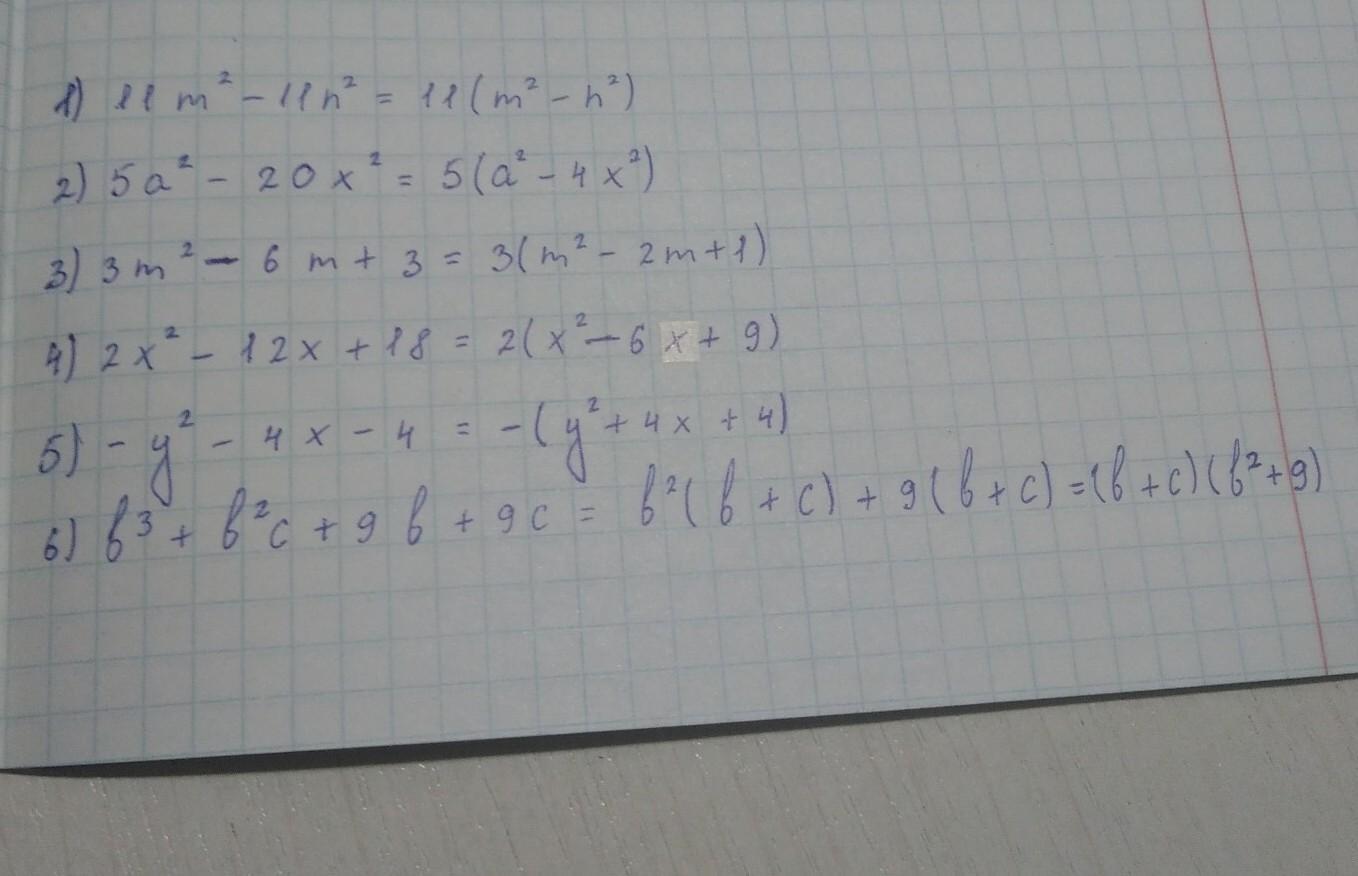 1) 11m² - 11n² = 11(m² - n²)
2) 5a² - 20x² = 5(a² - 4x²)
3) 3m² - 6m + 3 = 3(m² - 2m + 1)
4) 2x² - 12x + 18 = 2(x² - 6x + 9)
5) - y² - 4x - 4 = -(y² + 4x + 4)
6) b³ + b²c + 9b + 9c = b²(b + c) + 9(b + c) = (b + c)(b² + 9)